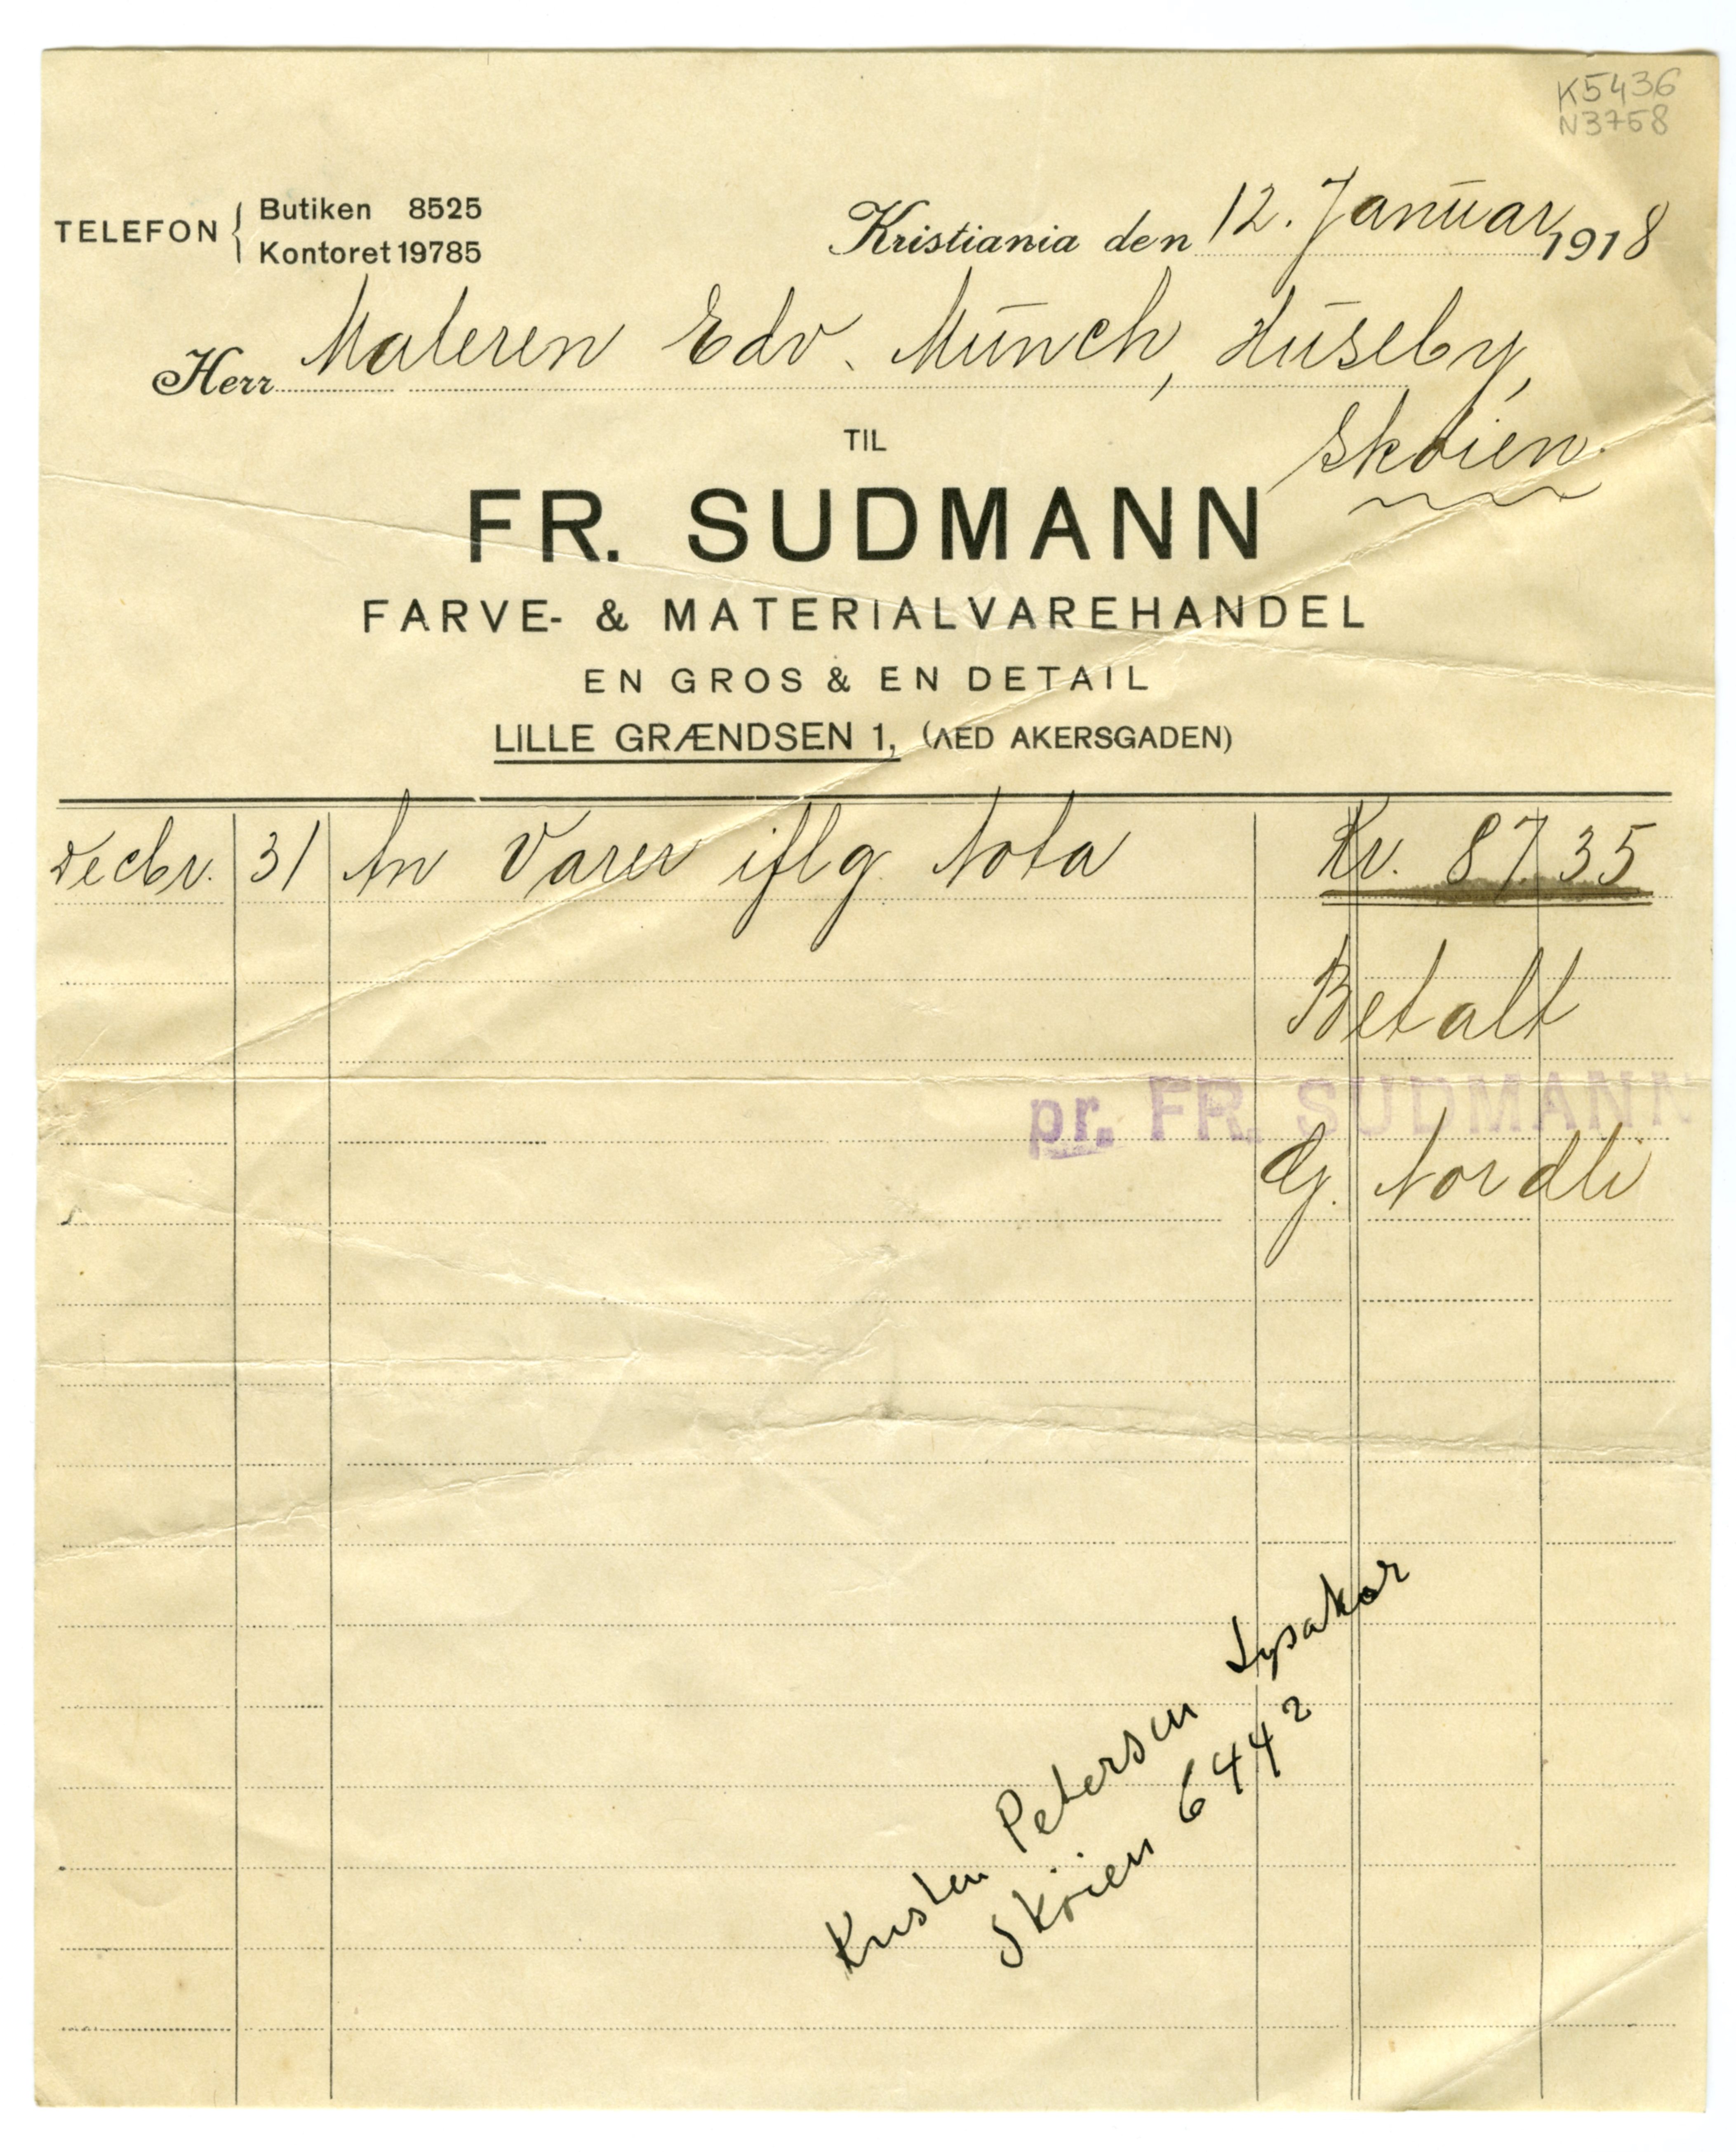 K5436
N3758
TELEFON { Butiken 8525
Kontoret 19785
Kristiania den 12. Januar 1918
Herr Maleren Edv. Munch, Huseby,
Skøien.
TIL
FR. SUDMANN
FARVE- & MATERIALVAREHANDEL
EN GROS & EN DETAIL
LILLE GRÆNDSEN 1, (VED AKERSGADEN)
Decbr. 31 An Varer iflg. Nota Kr. 87 35
Betalt
pr. FR. SUDMANN
G. Nordli
Kristen Petersen Lysaker
Sköien 6442